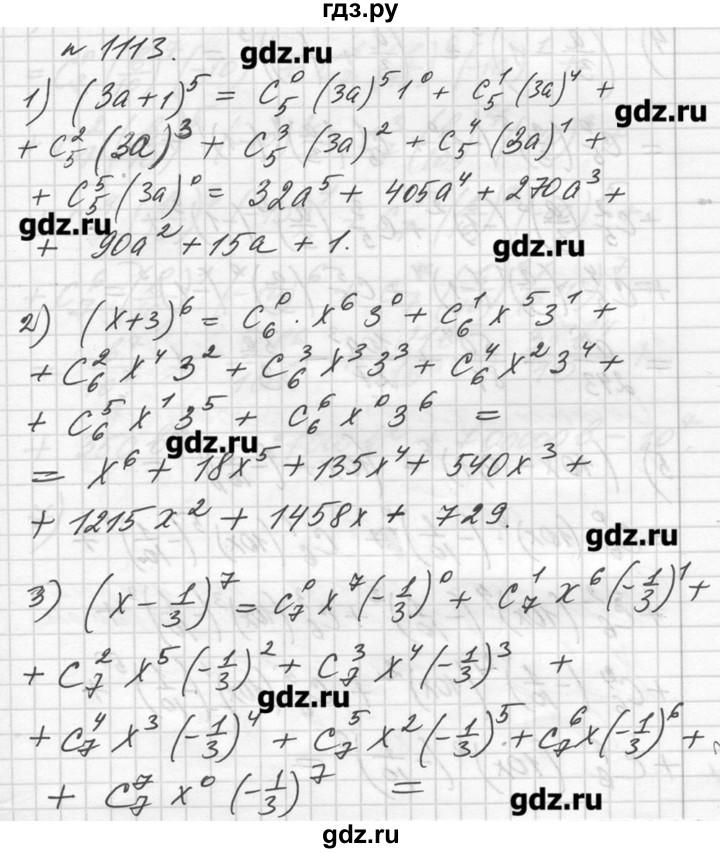 гдз.ру
№ 1113.
gdz.ru
1) (3a+1)^5 = C_5^0 (3a)^5 1^0 + C_5^1 (3a)^4 +
gdz.ru
+ C_5^2 (3a)^3 + C_5^3 (3a)^2 + C_5^4 (3a)^1 +
+ C_5^5 (3a)^0 = 32a^5 + 405a^4 + 270a^3 +
gdz.ru
+ 90a^2 + 15a + 1.
gdz.ru
2) (x+3)^6 = C_6^0 · x^6 3^0 + C_6^1 x^5 3^1 +
+ C_6^2 x^4 3^2 + C_6^3 x^3 3^3 + C_6^4 x^2 3^4 +
+ C_6^5 x^1 3^5 + C_6^6 x^0 3^6 =
gdz.ru
= x^6 + 18x^5 + 135x^4 + 540x^3 +
+ 1215x^2 + 1458x + 729.
gdz.ru
3) (x - 1/3)^7 = C_7^0 x^7 (-1/3)^0 + C_7^1 x^6 (-1/3)^1 +
+ C_7^2 x^5 (-1/3)^2 + C_7^3 x^4 (-1/3)^3 +
gdz.ru
+ C_7^4 x^3 (-1/3)^4 + C_7^5 x^2 (-1/3)^5 + C_7^6 x (-1/3)^6 +
+ C_7^7 x^0 (-1/3)^7 =
gdz.ru
gdz.ru